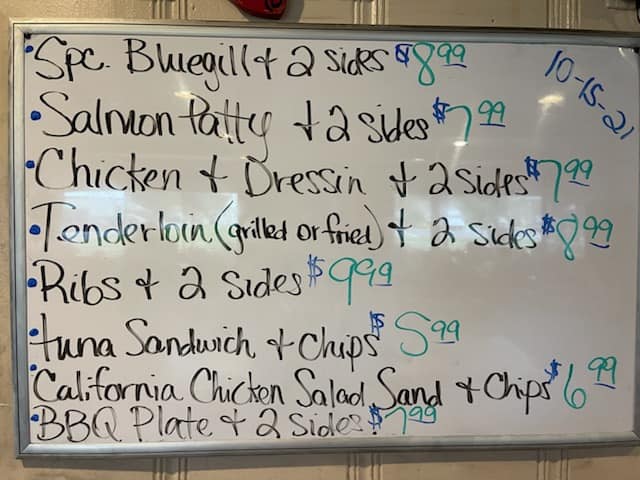 •Spc. Bluegill + 2 sides $8.99
10-15-21
•Salmon Patty + 2 sides $7.99
•Chicken + Dressin + 2 sides $7.99
•Tenderloin (grilled or fried) + 2 sides $8.99
•Ribs + 2 sides $9.99
•tuna Sandwich + Chips $5.99
•California Chicken Salad Sand + Chips $6.99
•BBQ Plate + 2 sides $7.99